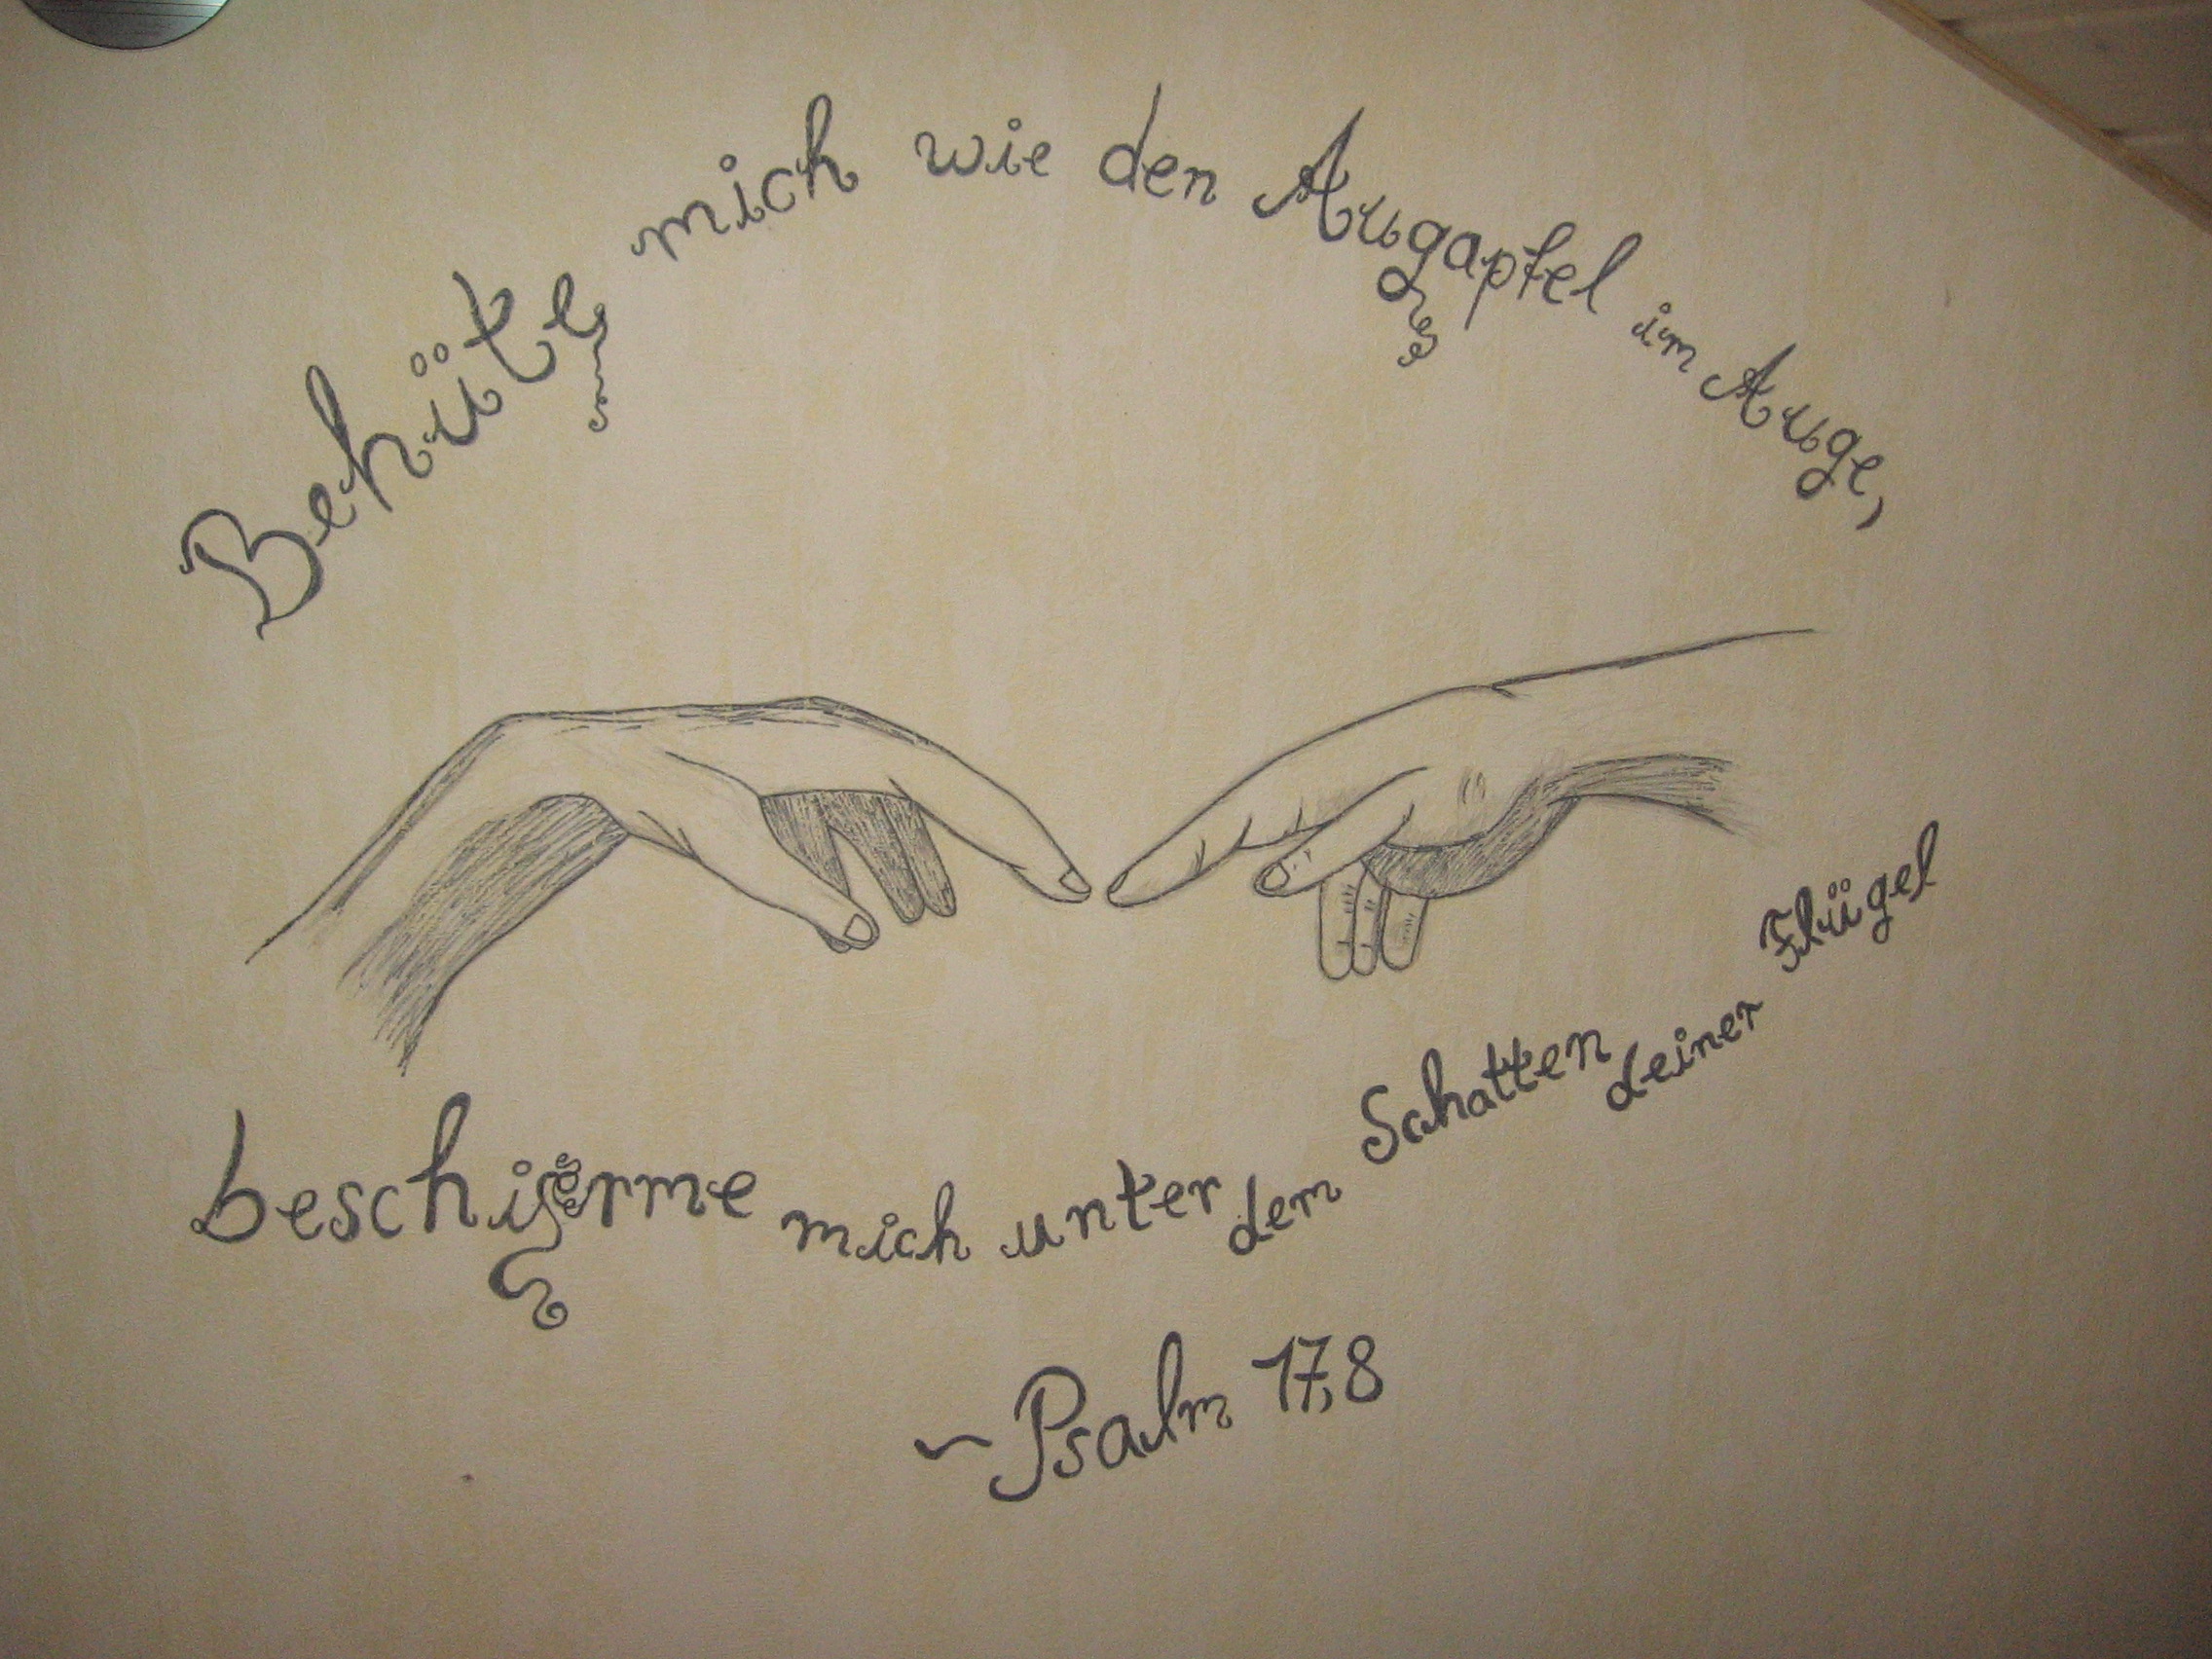 Behüte mich wie den Augapfel im Auge,
beschirme mich unter dem Schatten deiner Flügel
~Psalm 17,8